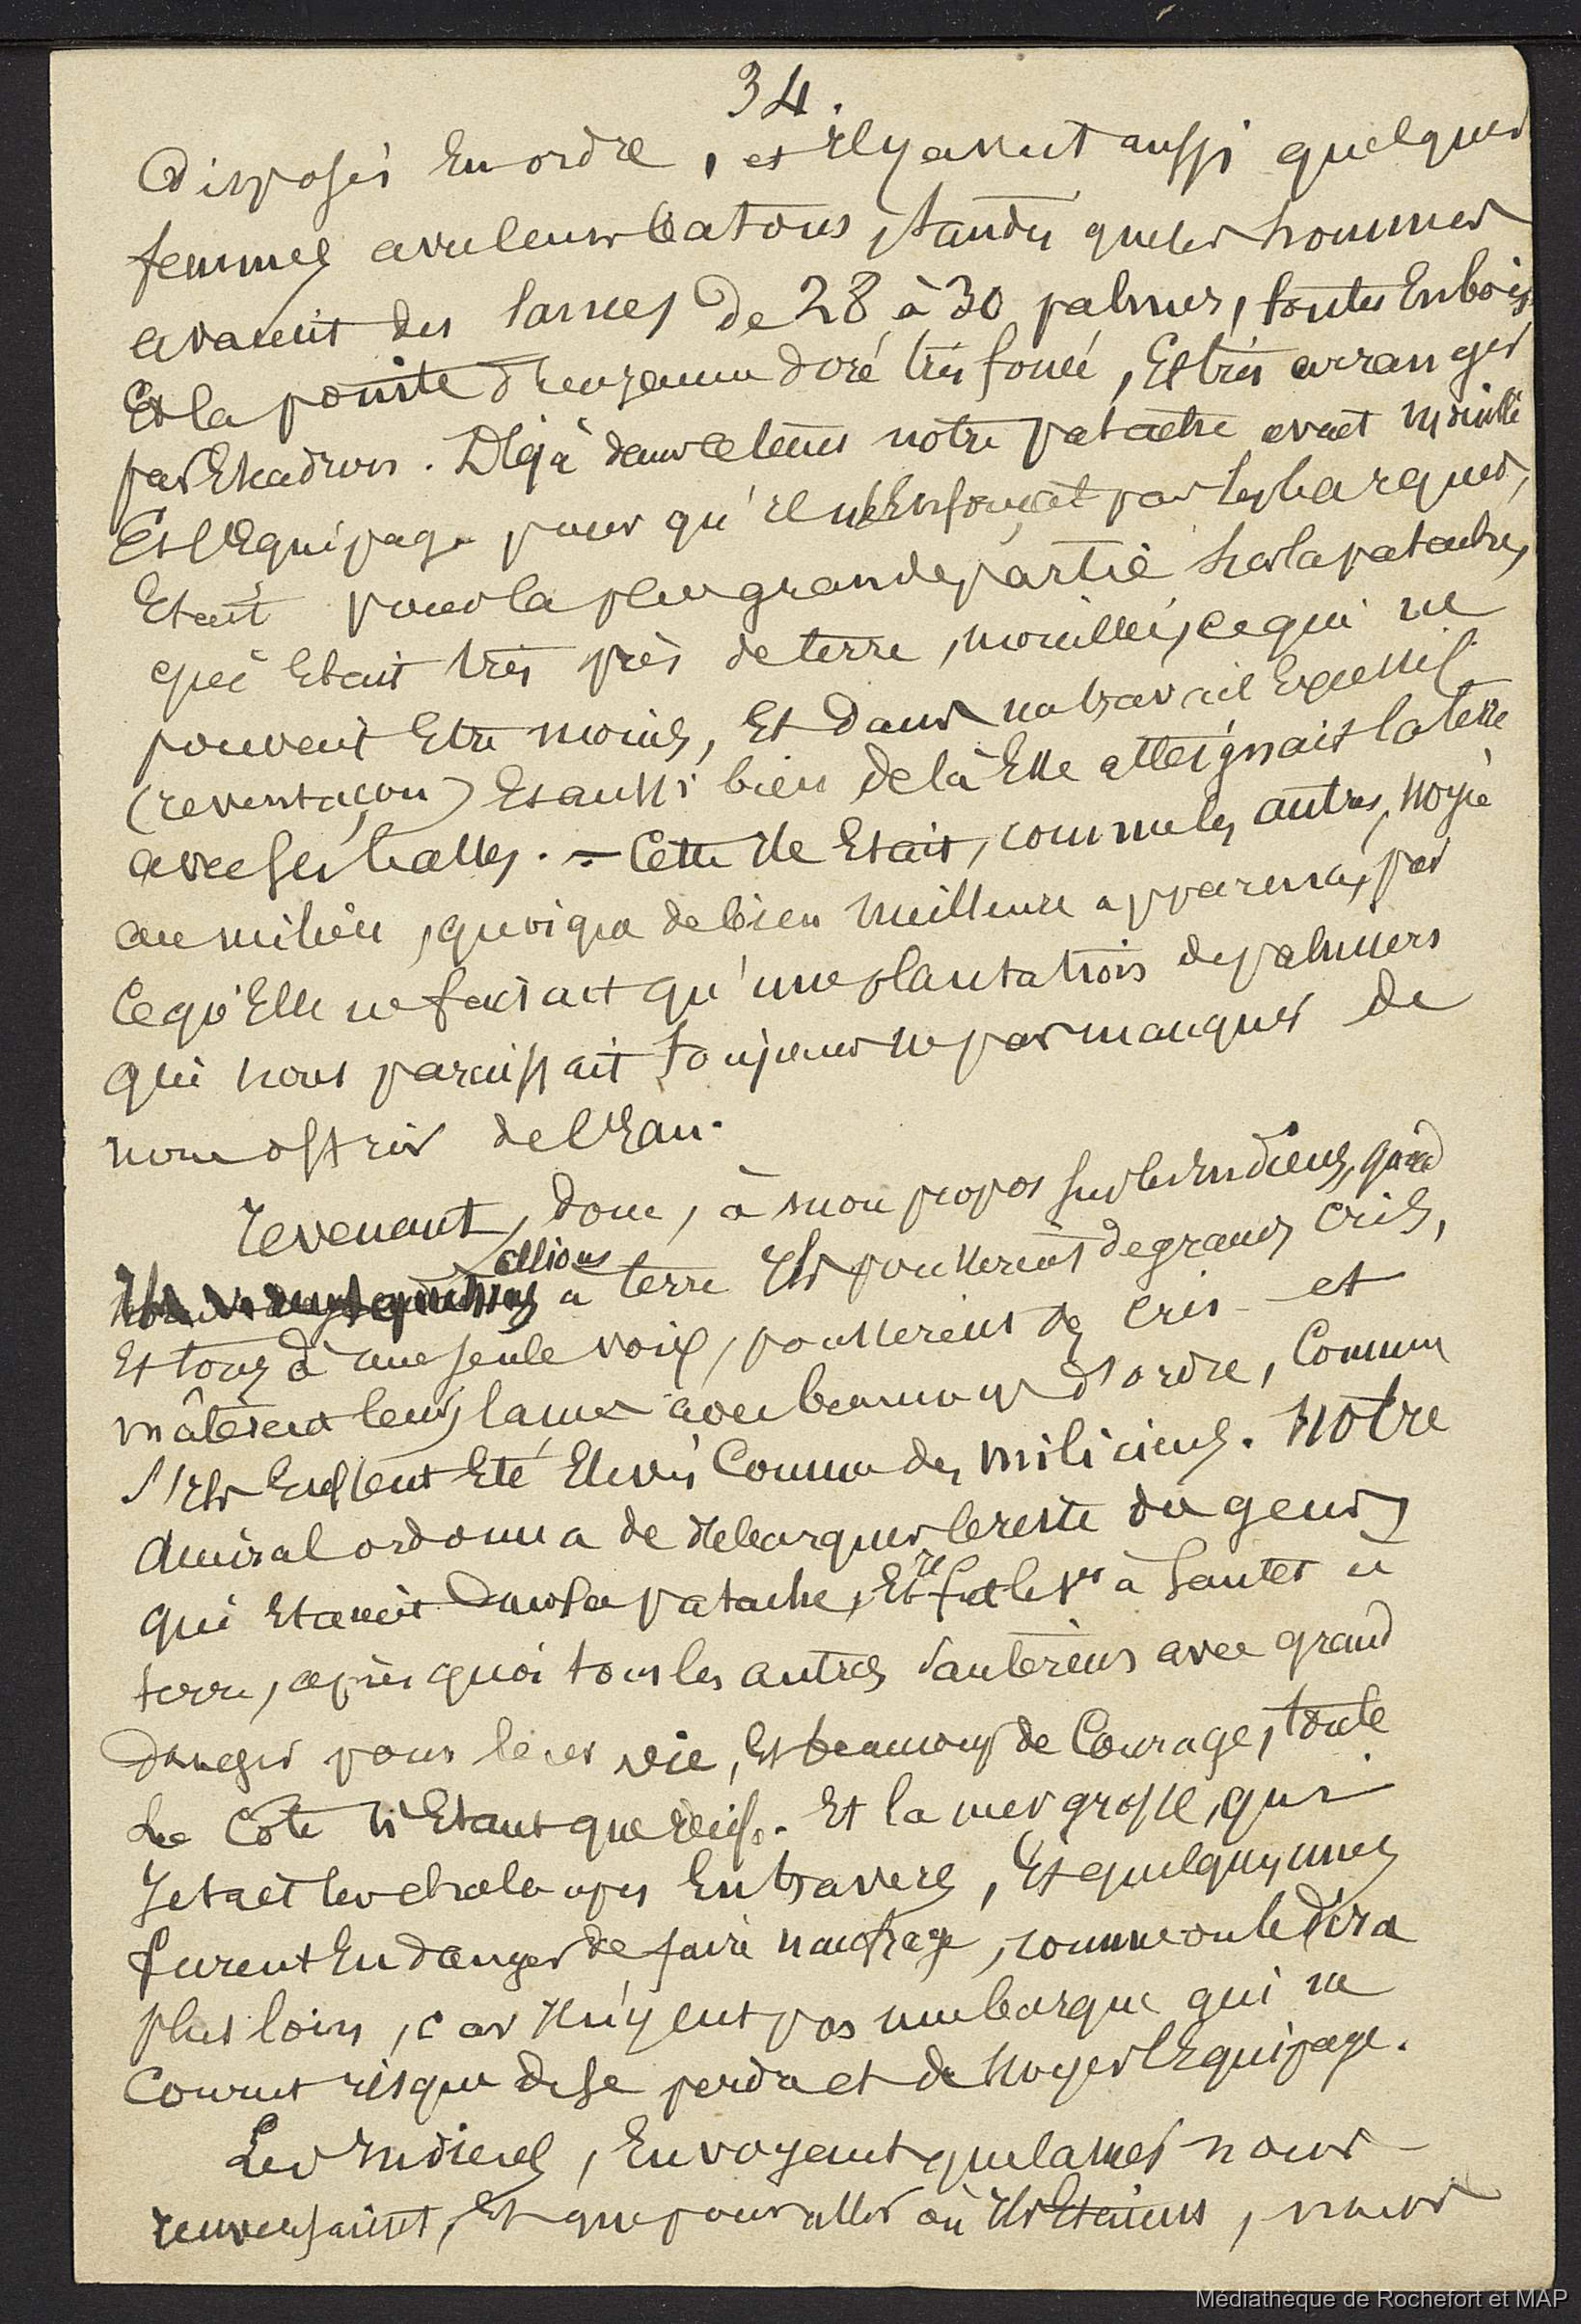 34.
disposés en ordre, et il y avait aussi quelques
femmes avec leurs batons, tandis que les hommes
avaient des lances de 28 à 30 palmes, toutes en bois
Et la pointe doré très foncé, Et très arranges
par Escadrons. Déjà dans ce tems notre patache avait mouillé
Et l'Equipage pour qu'il n'enfonçat pas les barques,
Etait pour la plus grande partie sur la patache,
qui Etait très près de terre, mouillée, ce qui ne
pouvait Etre moins, Et dans un travail Excessif
(reventaçon) Et aussi bien de là Elle atteignait la terre
avec ses balles. = Cette Ile Etait, comme les autres, noyée
au milieu, quoique de bien meilleure apparence, par
ce qu'Elle ne faisait qu'une plantation de palmiers
qui nous paraissait toujours ne pas manquer de
nous offrir de l'Eau.
Revenant, donc, à mon propos sur les Indiens, quand
allions
à terre Ils pousserent de grands cris,
Et tous à une seule voix, pousserent des cris et
mâterent leurs lances avec beaucoup d'ordre, Comme
s'Ils Eussent Eté Elevés Comme des miliciens. Notre
Amiral ordonna de debarquer le reste du gens
qui Etaient dans la patache, Et il fut le 1er à sauter à
terre, après quoi tous les autres sauterent avec grand
danger pour leur vie, Et beaucoup de Courage, toute
La Côte n'Etant que récifs. Et la mer grosse, qui
Jetait les chaloupes En travers, Et quelques unes
furent En danger de faire naufrage, comme on le dira
plus loin, car Il n'y eut pas une barque qui ne
Courut risque de se perdre et de noyer l'Equipage.
Les Indiens, En voyant que la mer nous
renversaient, Et que pour aller où Ils Etaient, nous
Médiathèque de Rochefort et MAP